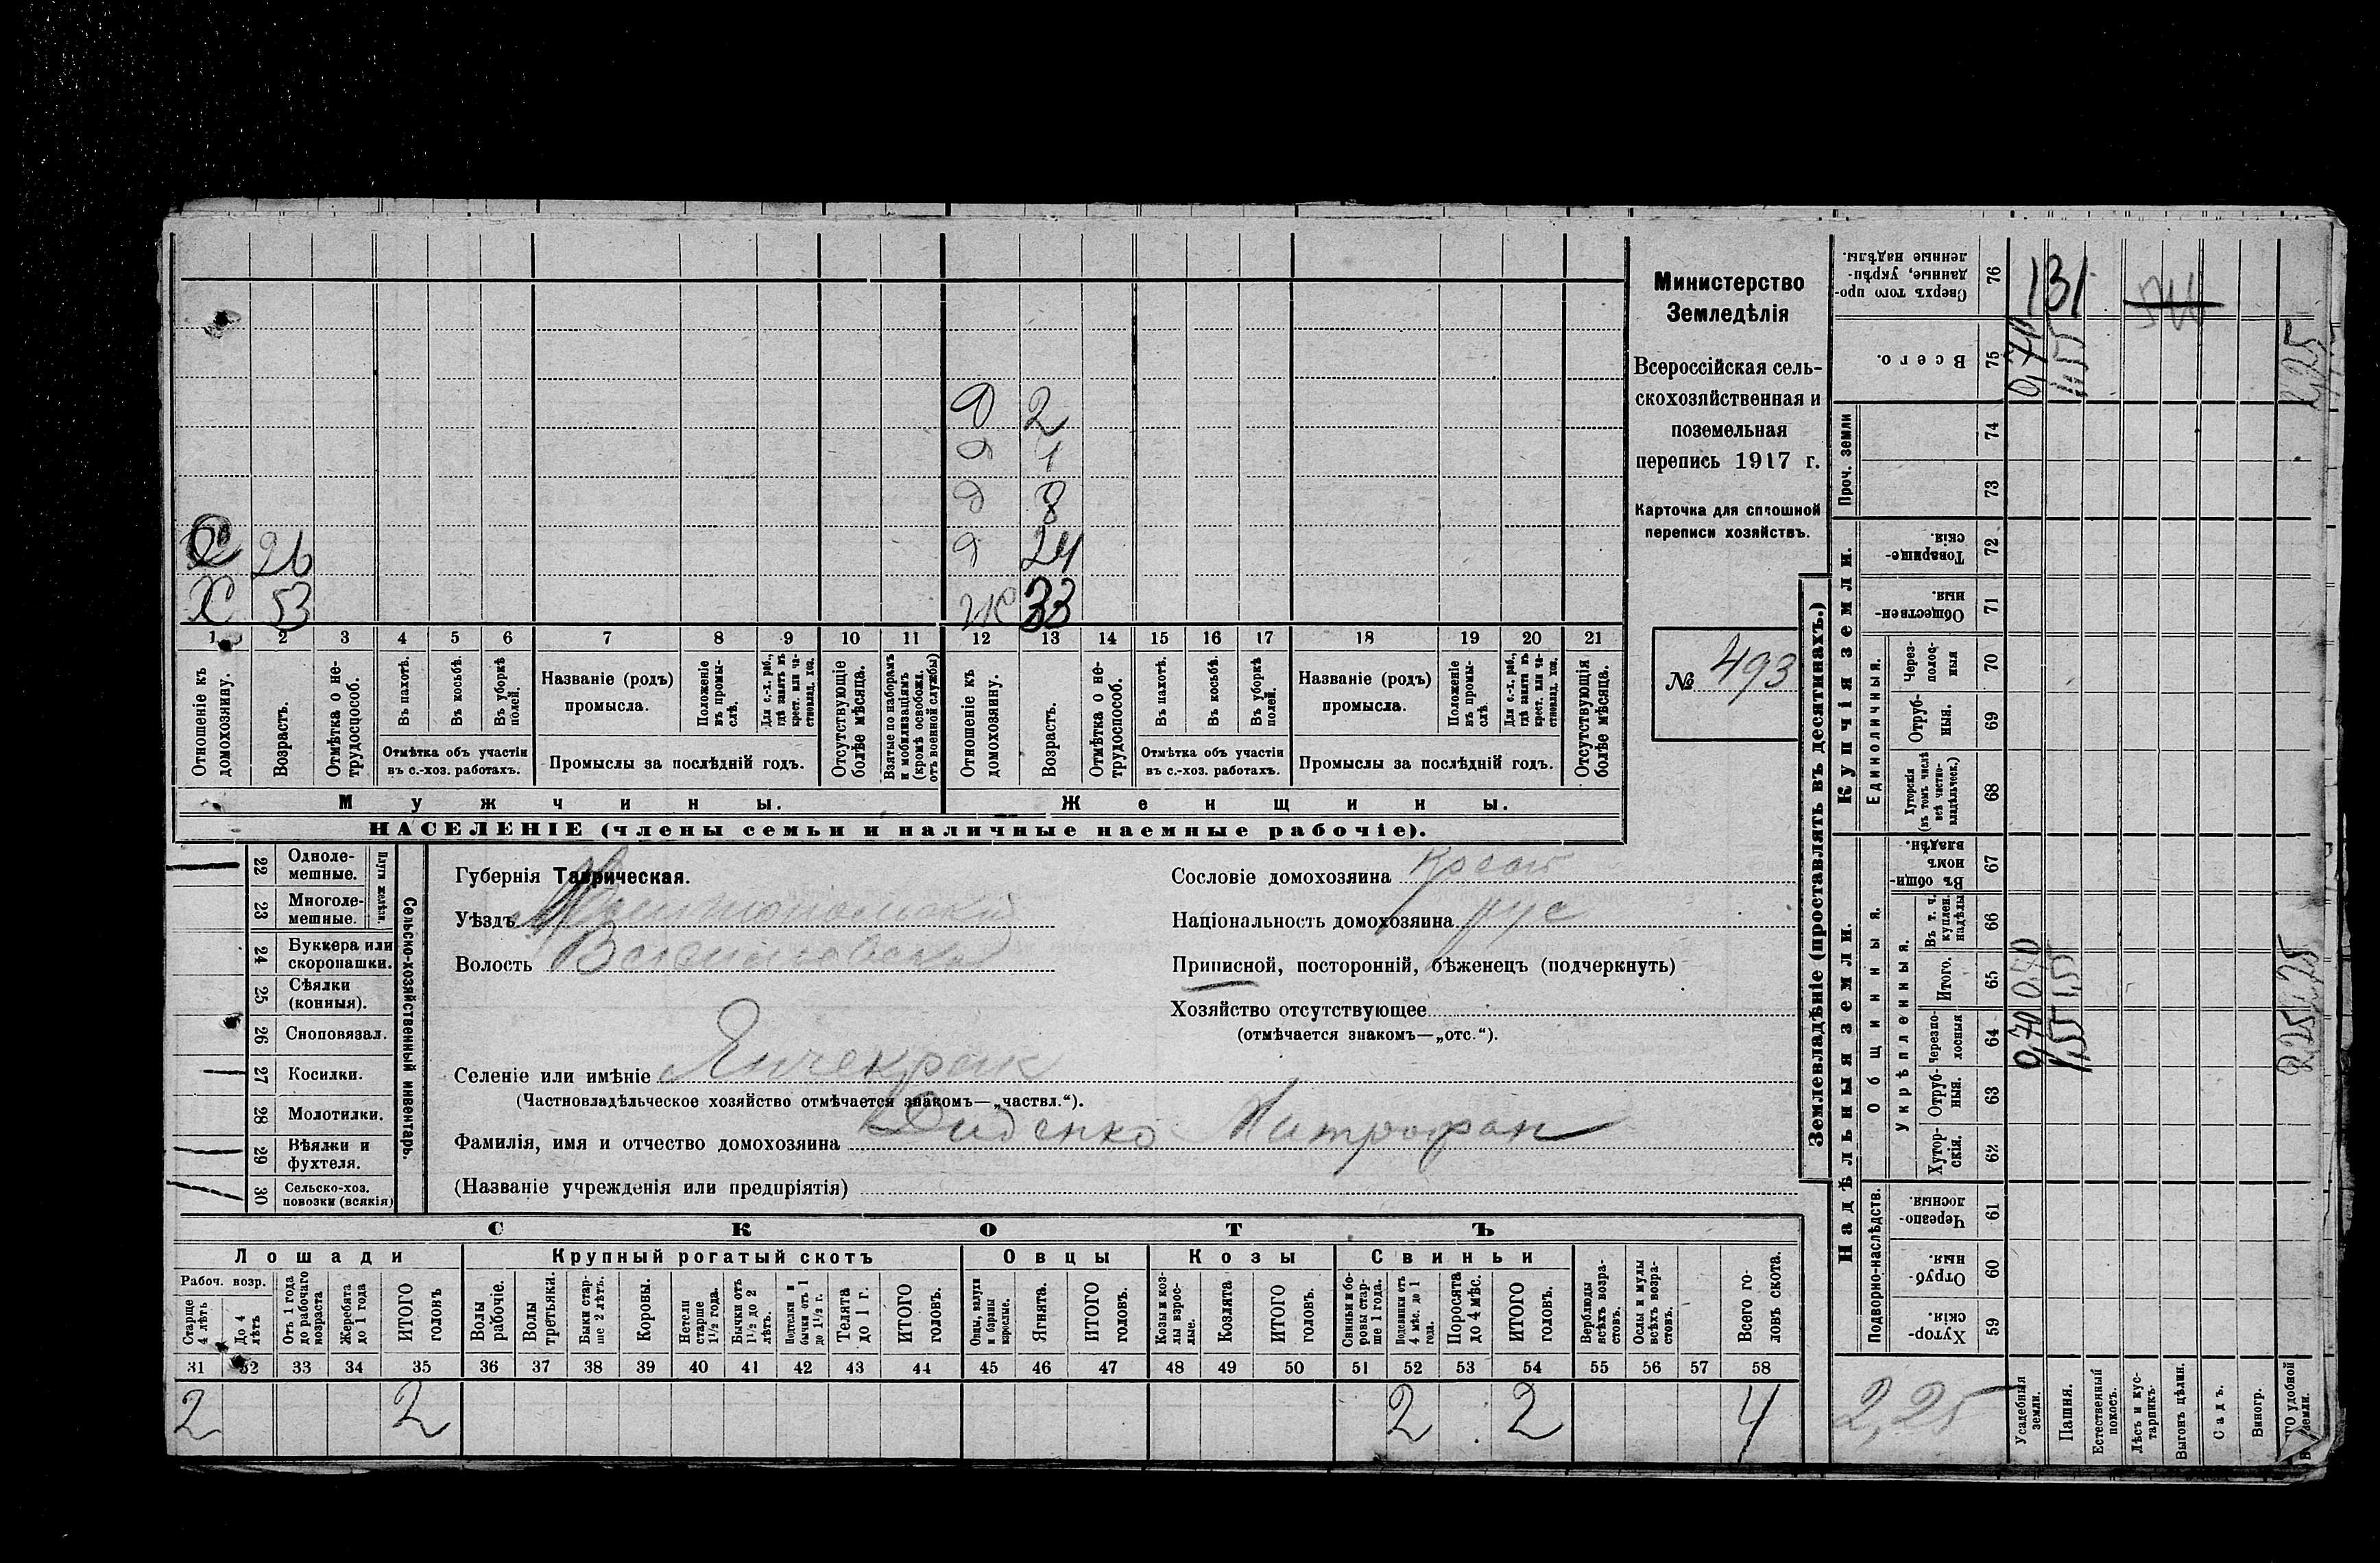 Министерство
Земледѣлія
Всероссійская сель-
скохозяйственная и
поземельная
перепись 1917 г.
Карточка для сплошной
переписи хозяйствъ.
№ 493
Д 2
Д 1
Д 8
С 26
Д 24
Х 53
Ж 33
1 2 3 4 5 6 7 8 9 10 11 12 13 14 15 16 17 18 19 20 21
Отношеніе къ домохозяину.
Возрастъ.
Отмѣтка о не-трудоспособ.
Въ пахотѣ.
Въ косьбѣ.
Въ уборкѣ полей.
Отмѣтка объ участіи
въ с.-хоз. работахъ.
Названіе (родъ)
промысла.
Положеніе въ промы-слѣ.
Для с.-х. раб., гдѣ занятъ въ крест. или ча-стновлад. хоз.
Промыслы за послѣдній годъ.
Отсутствующіе болѣе мѣсяца.
Взятые по наборамъ и мобилизаціямъ (кромѣ освобожд. отъ военной службы)
Отношеніе къ домохозяину.
Возрастъ.
Отмѣтка о не-трудоспособ.
Въ пахотѣ.
Въ косьбѣ.
Въ уборкѣ полей.
Отмѣтка объ участіи
въ с.-хоз. работахъ.
Названіе (родъ)
промысла.
Положеніе въ промы-слѣ.
Для с.-х. раб., гдѣ занята въ крест. или ча-стновлад. хоз.
Промыслы за послѣдній годъ.
Отсутствующія болѣе мѣсяца.
Мужчины.
Женщины.
НАСЕЛЕНІЕ (члены семьи и наличные наемные рабочіе).
22 Одноле-мешные.
23 Многоле-мешные.
24 Буккера или скоропашки.
25 Сѣялки (конныя).
26 Сноповязал.
27 Косилки.
28 Молотилки.
29 Вѣялки и фухтеля.
30 Сельско-хоз. повозки (всякія)
Сельско-хозяйственный инвентарь.
Губернія Таврическая.
Уѣздъ Мелитопольскій
Волость
Селеніе или имѣніе Янчекрак
(Частновладѣльческое хозяйство отмѣчается знакомъ—„частвл.“).
Фамилія, имя и отчество домохозяина Диденко Митрофан
(Названіе учрежденія или предпріятія)
Сословіе домохозяина крест
Національность домохозяина рус
Приписной, посторонній, бѣженецъ (подчеркнуть)
Хозяйство отсутствующее
(отмѣчается знакомъ—„отс.“).
СКОТЪ
Лошади
Крупный рогатый скотъ
Овцы
Козы
Свиньи
Рабоч. возр.
Старше 4 лѣтъ
До 4 лѣтъ
Отъ 1 года до рабочаго возраста
Жеребята до 1 года
ИТОГО головъ
Волы рабочіе.
Волы третьяки.
Быки стар-ше 2 лѣтъ.
Коровы.
Нетели старше 1½ года.
Бычки отъ 1½ до 2 лѣтъ.
Подтелки и бычки отъ 1 до 1½ г.
Телята до 1 г.
ИТОГО головъ.
Овцы, валухи и бараны взрослые.
Ягнята.
ИТОГО головъ.
Козы и коз-лы взрос-лые.
Козлята
ИТОГО головъ.
Свиньи и бо-ровы стар-ше 1 года.
Подсвинки отъ 4 мѣс. до 1 года.
Поросята до 4 мѣс.
ИТОГО головъ.
Верблюды всѣхъ возра-стовъ.
Ослы и мулы всѣхъ возра-стовъ.
Всего го-ловъ скота.
31 32 33 34 35 36 37 38 39 40 41 42 43 44 45 46 47 48 49 50 51 52 53 54 55 56 57 58
2 2 2 2 4
Землевладѣніе (проставлять въ десятинахъ.)
Купчія земли.
Надѣльныя земли.
Сверхъ того про-данные, укрѣп-ленные надѣлы. 76 131
Всего. 75
Проч. земли 74 73
Товарище-скія. 72
Обществен-ныя. 71
Единоличныя.
Через-полос-ныя 70
Отруб-ныя. 69
Хуторскія (въ томъ числѣ всѣ частно-владѣльческ.) 68
Общинныя.
Въ общи-номъ владѣн. 67
Укрѣпленныя.
Въ т. ч. куплен. надѣлы 66
Итого. 65
Черезпо-лосныя 64 0,70 1,55
Отруб-ныя. 63
Хутор-скія. 62
Подворно-наслѣдств.
Черезпо-лосныя. 61
Отруб-ныя. 60
Хутор-скія. 59
2,25
Усадебныя земли.
Пашня.
Естественный покосъ.
Лѣсъ и кус-тарникъ.
Выгонъ цѣлин.
Садъ.
Виногр.